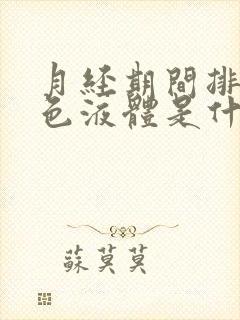 月経期間排
色液體是什
蘇莫莫